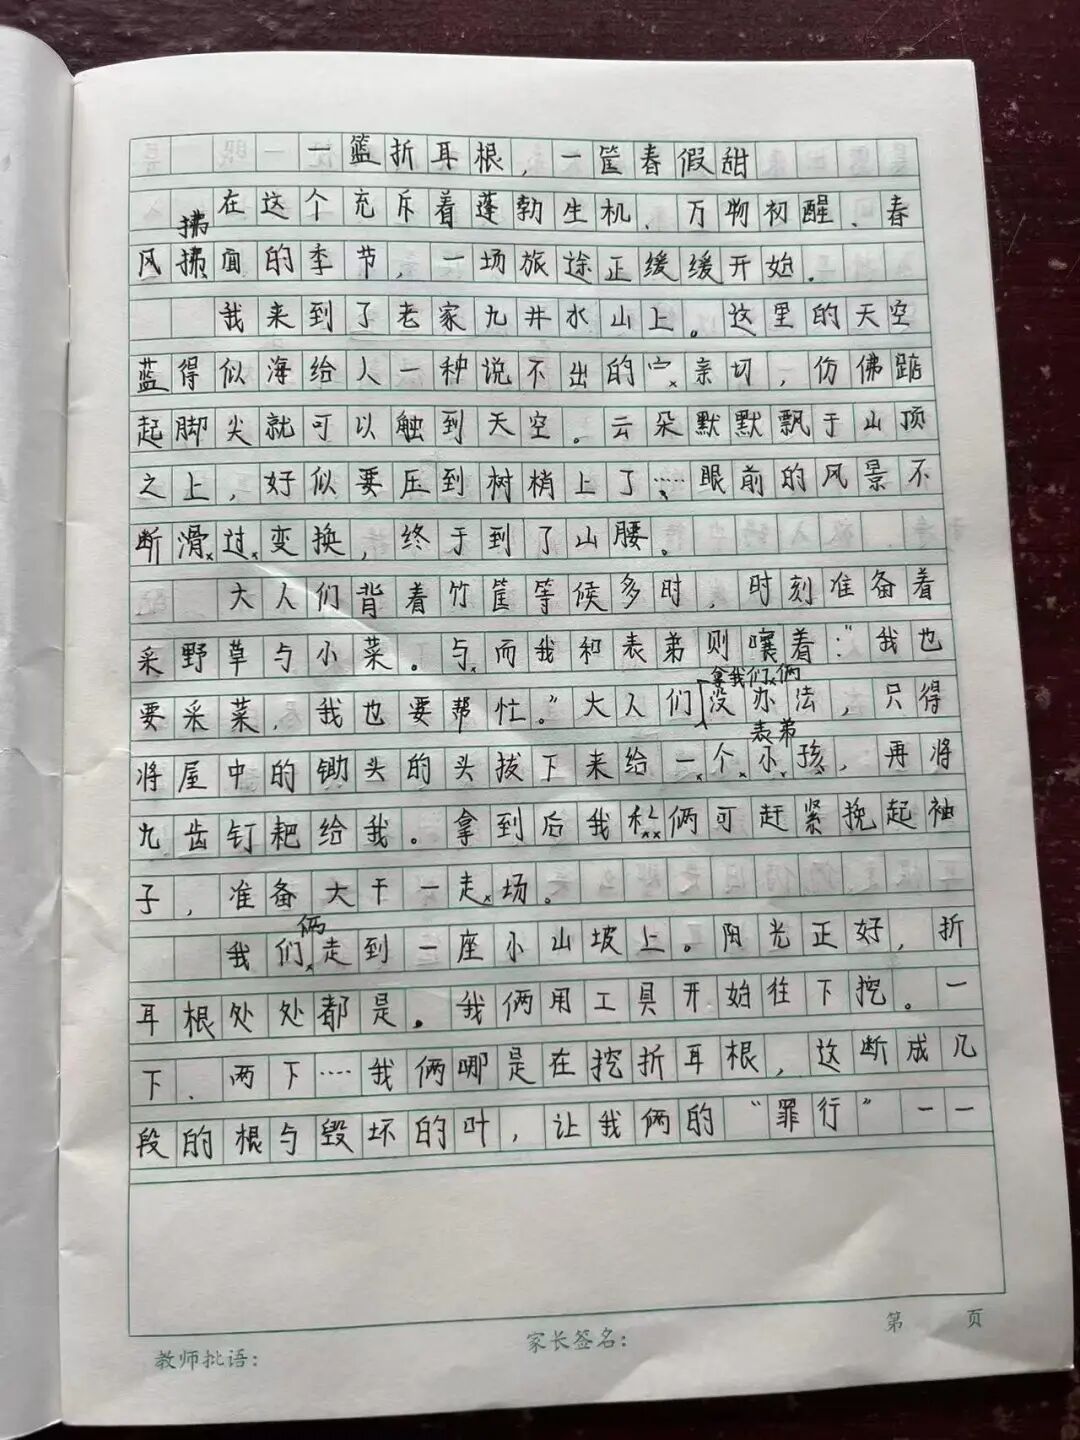 一篮折耳根，一筐春假甜
在这个充斥着蓬勃生机、万物初醒、春
拂
风拂面的季节，一场旅途正缓缓开始．
我来到了老家九井水山上。这里的天空
蓝得似海给人一种说不出的亲切，仿佛踮
起脚尖就可以触到天空。云朵默默飘于山顶
之上，好似要压到树梢上了……眼前的风景不
断滑过变换，终于到了山腰。
大人们背着竹筐等候多时，时刻准备着
采野草与小菜。与而我和表弟则嚷着：“我也
拿我们俩
要采菜，我也要帮忙。”大人们没办法，只得
表弟
将屋中的锄头的头拔下来给一个小孩，再将
九齿钉耙给我。拿到后我俩可赶紧挽起袖
子，准备大干一走场。
俩
我们走到一座小山坡上。阳光正好，折
耳根处处都是。我俩用工具开始往下挖。一
下、两下……我俩哪是在挖折耳根，这断成几
段的根与毁坏的叶，让我俩的“罪行”一一
教师批语：
家长签名：
第 页